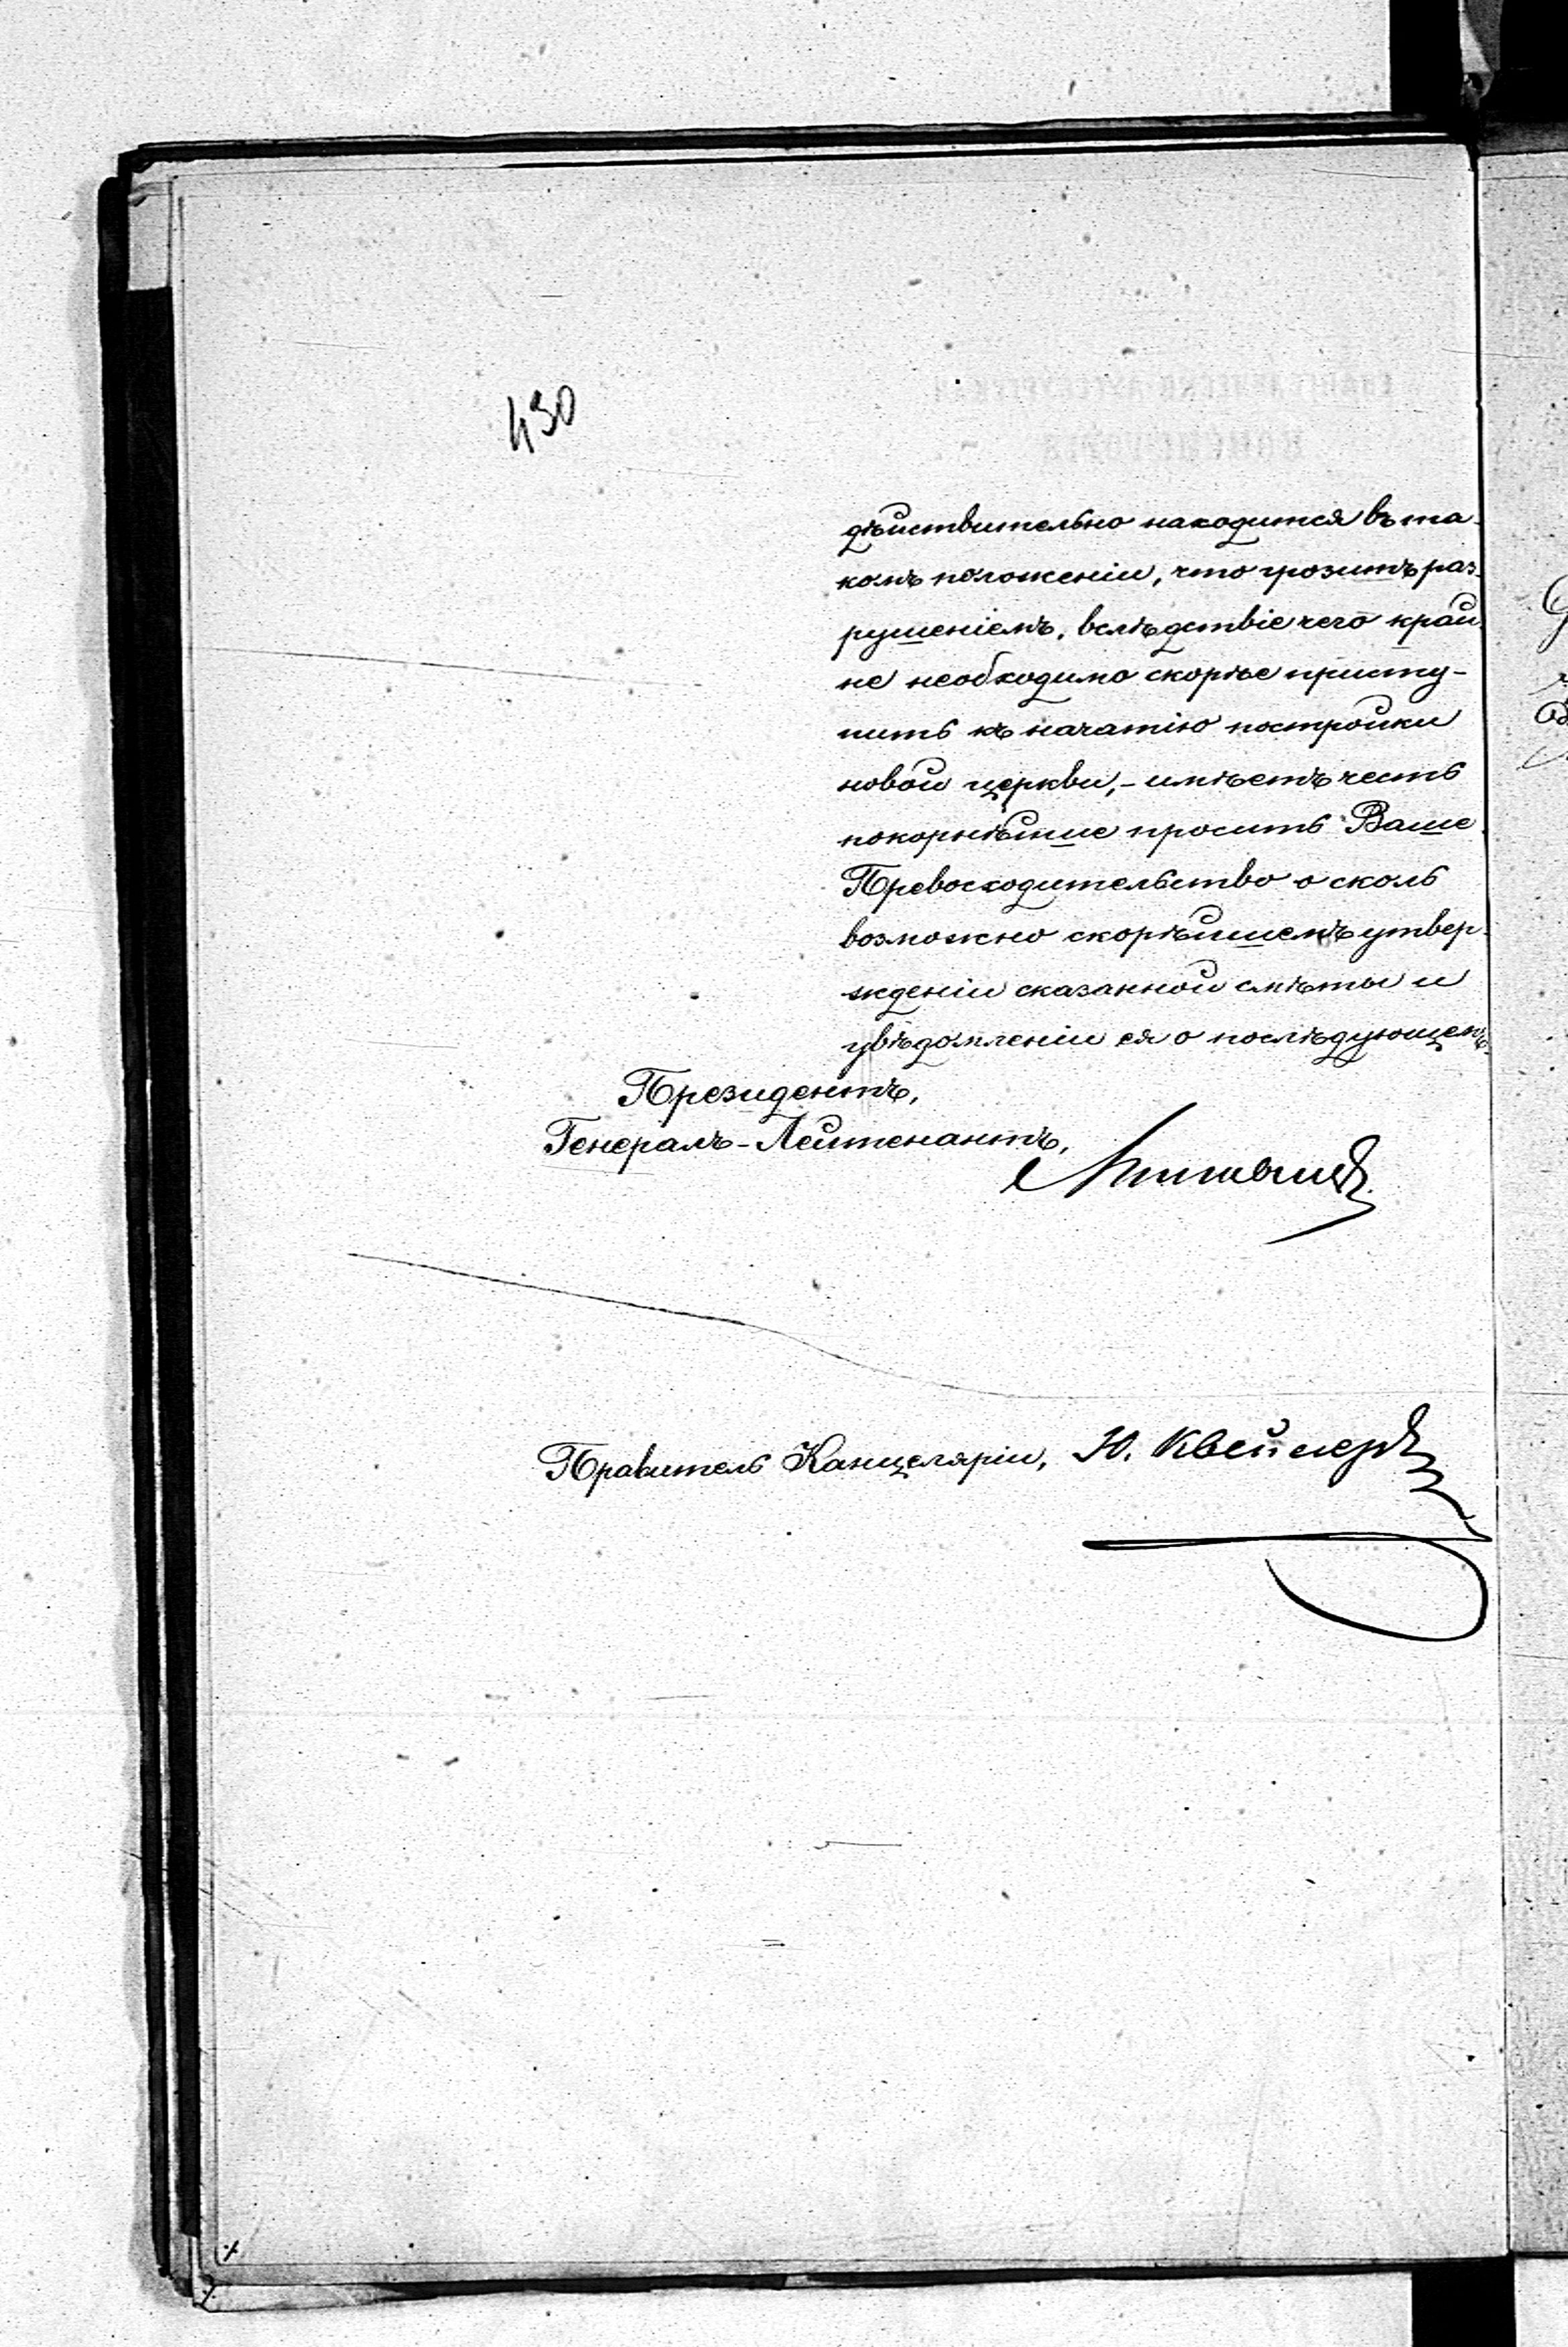 430
дѣйствительно находится въ та-
комъ положеніи, что грозитъ раз-
рушеніемъ, вслѣдствіе чего край-
не необходимо скорѣе присту-
пить къ начатію постройки
новой церкви, - имѣетъ честь
покорнѣйше просить Ваше
Превосходительство о сколь
возможно скорѣйшемъ утвер-
жденіи сказанной смѣты и
увѣдомленіи ея о послѣдующемъ.
Президентъ,
Генералъ-Лейтенантъ,
Правитель Канцеляріи, Ю.